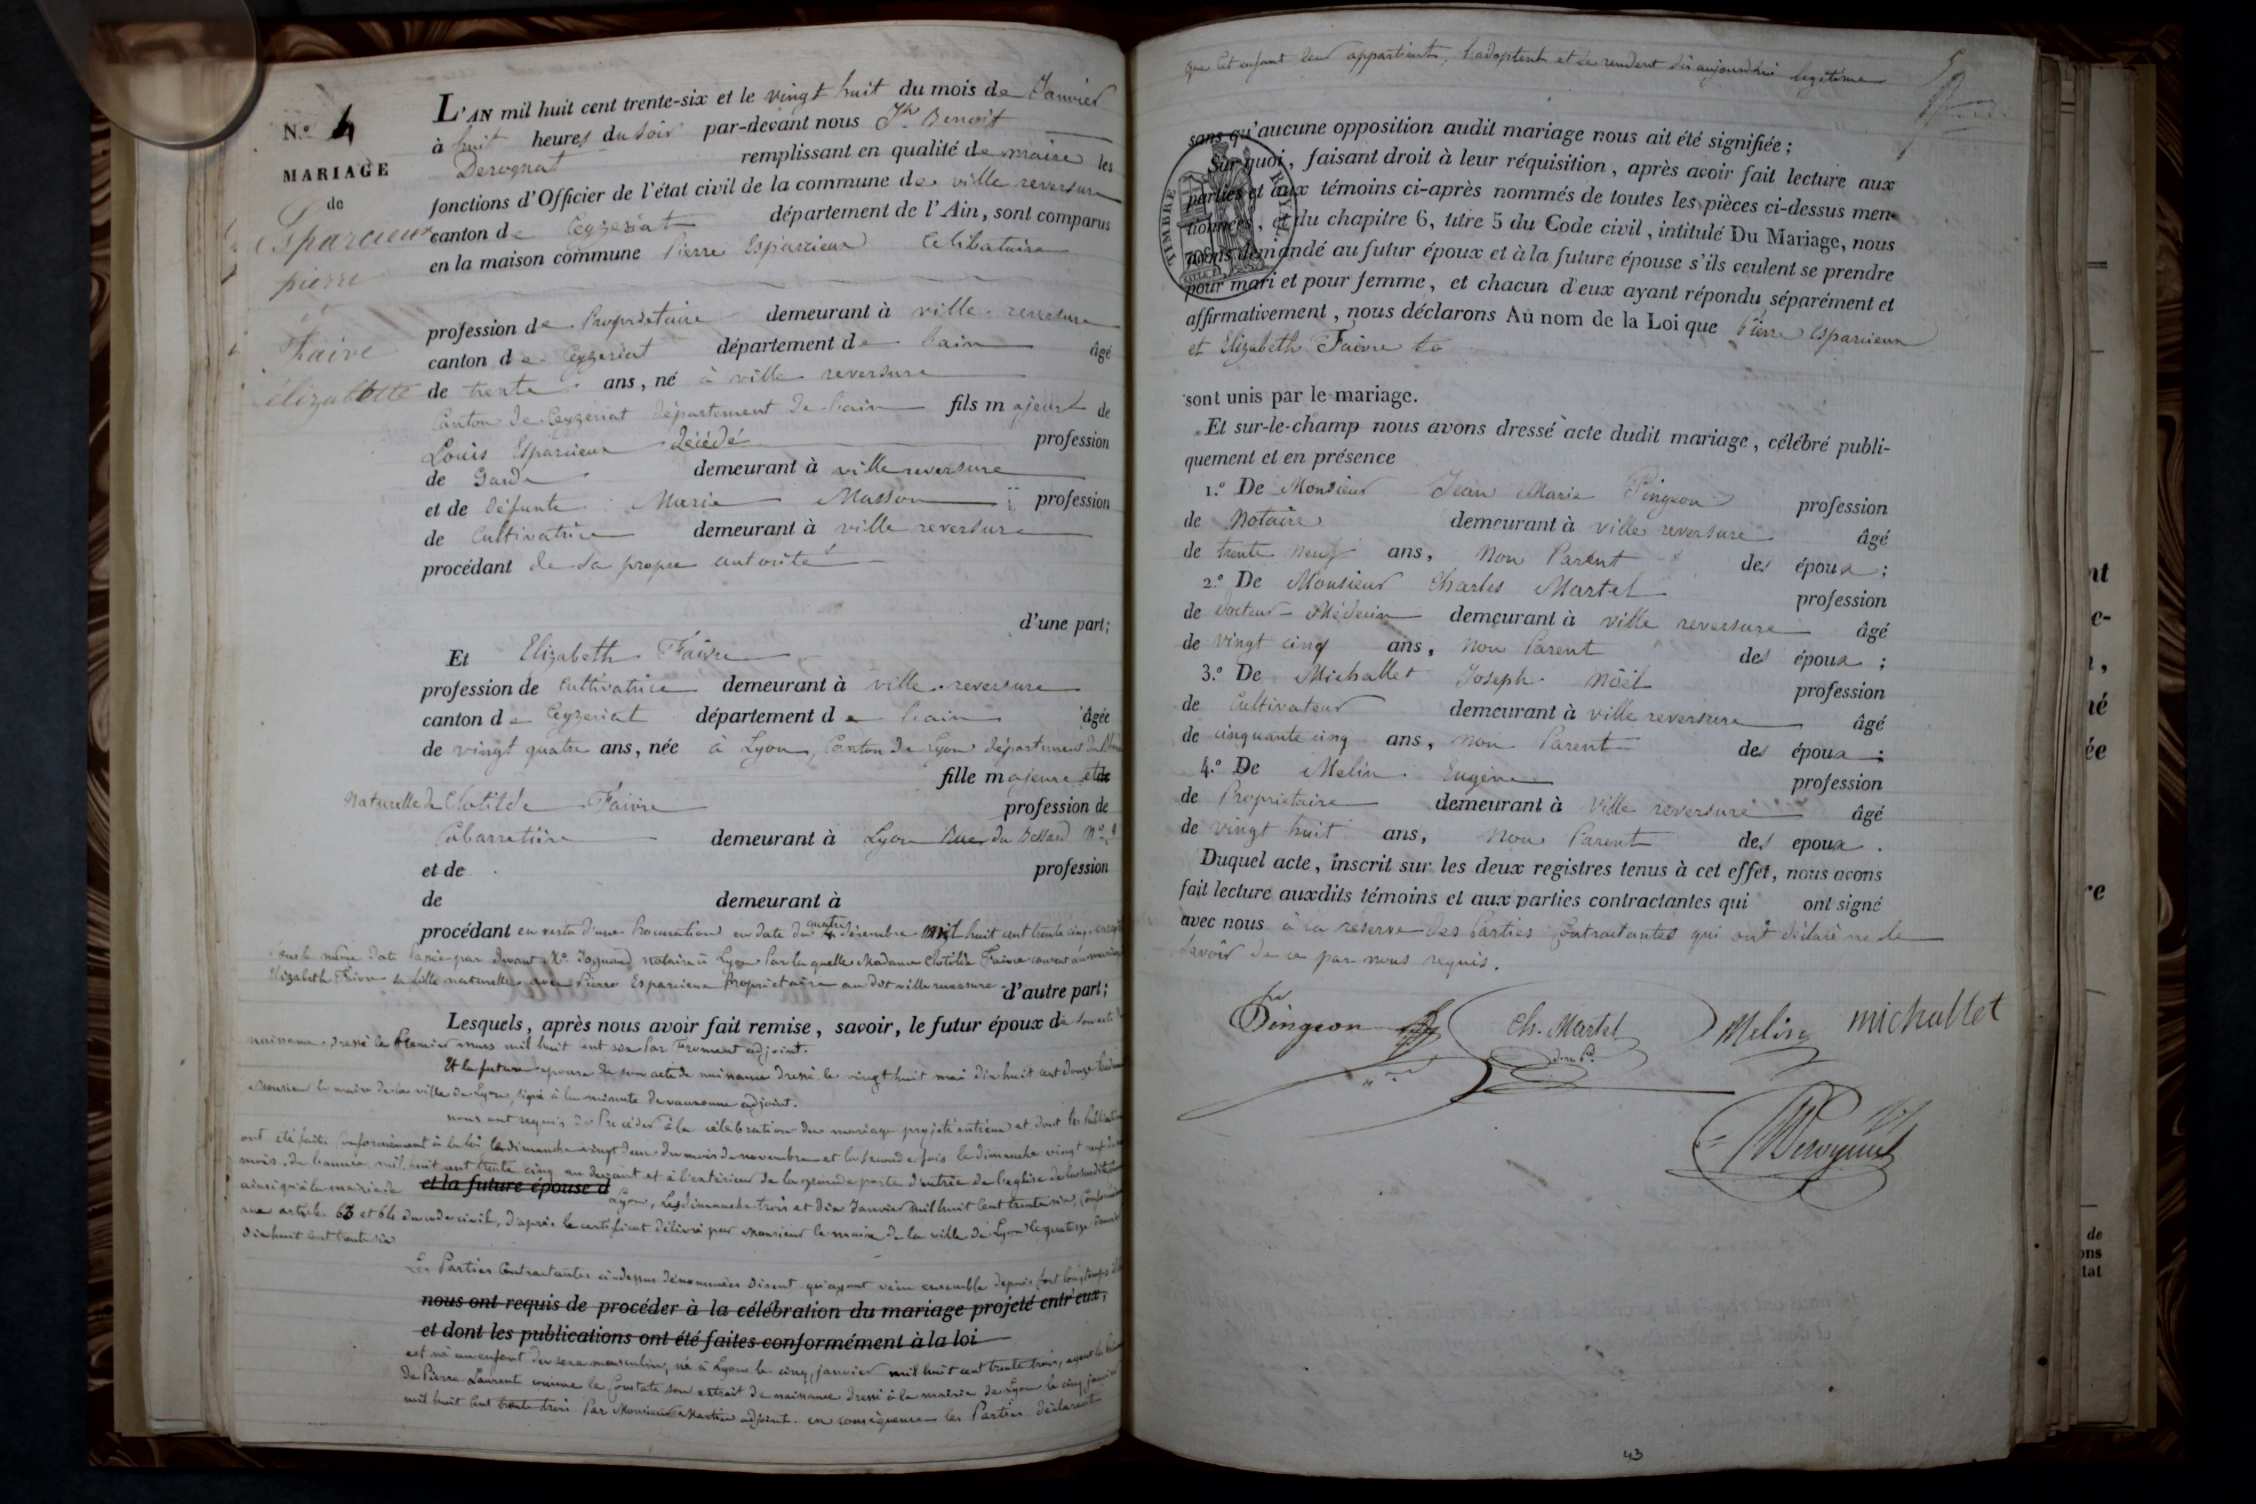 N.º 4
MARIAGE
de
Esparcieux
pierre
et
Faivre
élizabette
L'AN mil huit cent trente-six et le vingt huit du mois de Janvier
à huit heures du soir par-devant nous Jh Benoit
Derognat remplissant en qualité de maire les
fonctions d'Officier de l'état civil de la commune de ville reversure
canton de Ceyzeriat département de l'Ain, sont comparus
en la maison commune Pierre Esparcieux Célibataire
profession de Propriétaire demeurant à ville reversure
canton de Ceyzeriat département de l'ain âgé
de trente ans, né à ville reversure
Canton de Ceyzériat département de l'ain fils majeur de
Louis Esparcieux décédé profession
de Garde demeurant à ville reversure
et de défunte Marie Masson profession
de Cultivatrice demeurant à ville reversure
procédant de sa propre autorité
d'une part;
Et Elizabeth Faivre
profession de Cultivatrice demeurant à ville reversure
canton de Ceyzeriat département de l'ain âgée
de vingt quatre ans, née à Lyon, Canton de Lyon département du
fille majeure et de
Naturelle de Clotilde Faivre profession de
Cabarretière demeurant à Lyon Rue du Bessard Nº
et de profession
de demeurant à
procédant en vertu d'une Procuration en date du quatre décembre mil huit cent trente cinq
sous la même date Passée par devant Me notaire à Lyon Par laquelle Madame Clotilde Faivre consent au mariage
Elizabeth Faivre sa fille naturelle avec Pierre Esparcieux Propriétaire au dit ville reversure d'autre part;
Lesquels, après nous avoir fait remise, savoir, le futur époux de son acte de
naissance dressé le Premier mars mil huit cent six Par Froment adjoint.
Et la future épouse de son acte de naissance dressé le vingt huit mai dix huit cent douze
Monsieur le maire de la ville de Lyon, signé à la minute Devauxonne adjoint.
nous ont requis de Procéder à la célébration du mariage projeté entr'eux et dont les Publications
ont été faites Conformément à la loi le dimanche vingt deux du mois de novembre et la seconde fois le dimanche vingt neuf du
mois de l'année mil huit cent trente cinq au devant et à l'extérieur de la grande porte d'entrée de l'église de
ainsi qu'à la mairie de et la future épouse d Lyon, Les dimanche trois et dix Janvier mil huit Cent trente six, Conformément
aux articles 63 et 64 du code civil, d'après le certificat délivré par Monsieur le maire de la ville de Lyon le quatorze Janvier
dix huit cent trente six
Les Parties Contractantes ci-dessus dénommées disent qu'ayant vécu ensemble depuis fort longtemps
nous ont requis de procéder à la célébration du mariage projeté entr'eux,
et dont les publications ont été faites conformément à la loi
est né un enfant du sexe masculin, né à Lyon le cinq janvier mil huit cent trente trois, ayant
de Pierre Laurent comme le Constate son extrait de naissance dressé à la mairie de Lyon le cinq janvier
mil huit Cent trente trois Par Monsieur Martin adjoint. en conséquence les Parties déclarent
que cet enfant leur appartient, l'adoptent et le rendent dès aujourd'hui légitime
5
sans qu'aucune opposition audit mariage nous ait été signifiée;
Sur quoi, faisant droit à leur réquisition, après avoir fait lecture aux
parties et aux témoins ci-après nommés de toutes les pièces ci-dessus men-
tionnées, et du chapitre 6, titre 5 du Code civil, intitulé Du Mariage, nous
avons demandé au futur époux et à la future épouse s'ils veulent se prendre
pour mari et pour femme, et chacun d'eux ayant répondu séparément et
affirmativement, nous déclarons Au nom de la Loi que Pierre Esparcieux
et Elizabeth Faivre
TIMBRE ROYAL
sont unis par le mariage.
Et sur-le-champ nous avons dressé acte dudit mariage, célébré publi-
quement et en présence
1.º De Monsieur Jean Marie Pingeon profession
de Notaire demeurant à ville reversure âgé
de trente neuf ans, Non Parent des époux;
2.º De Monsieur Charles Martel profession
de docteur Médecin demeurant à ville reversure âgé
de vingt cinq ans, Non Parent des époux;
3.º De Michallet Joseph Noël profession
de Cultivateur demeurant à ville reversure âgé
de cinquante cinq ans, Non Parent des époux;
4.º De Melin Eugène profession
de Propriétaire demeurant à Ville reversure âgé
de vingt huit ans, Non Parent des epoux.
Duquel acte, inscrit sur les deux registres tenus à cet effet, nous avons
fait lecture auxdits témoins et aux parties contractantes qui ont signé
avec nous à la réserve des Parties Contractantes qui ont déclaré ne le
savoir de ce par nous requis.
Pingeon
Ch. Martel
Melin
michallet
Derognat
43